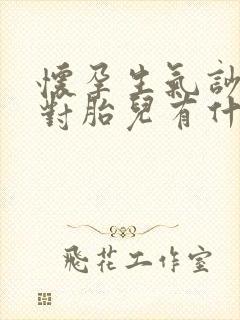 懷孕生氣
對胎兒有什
飛花工作室